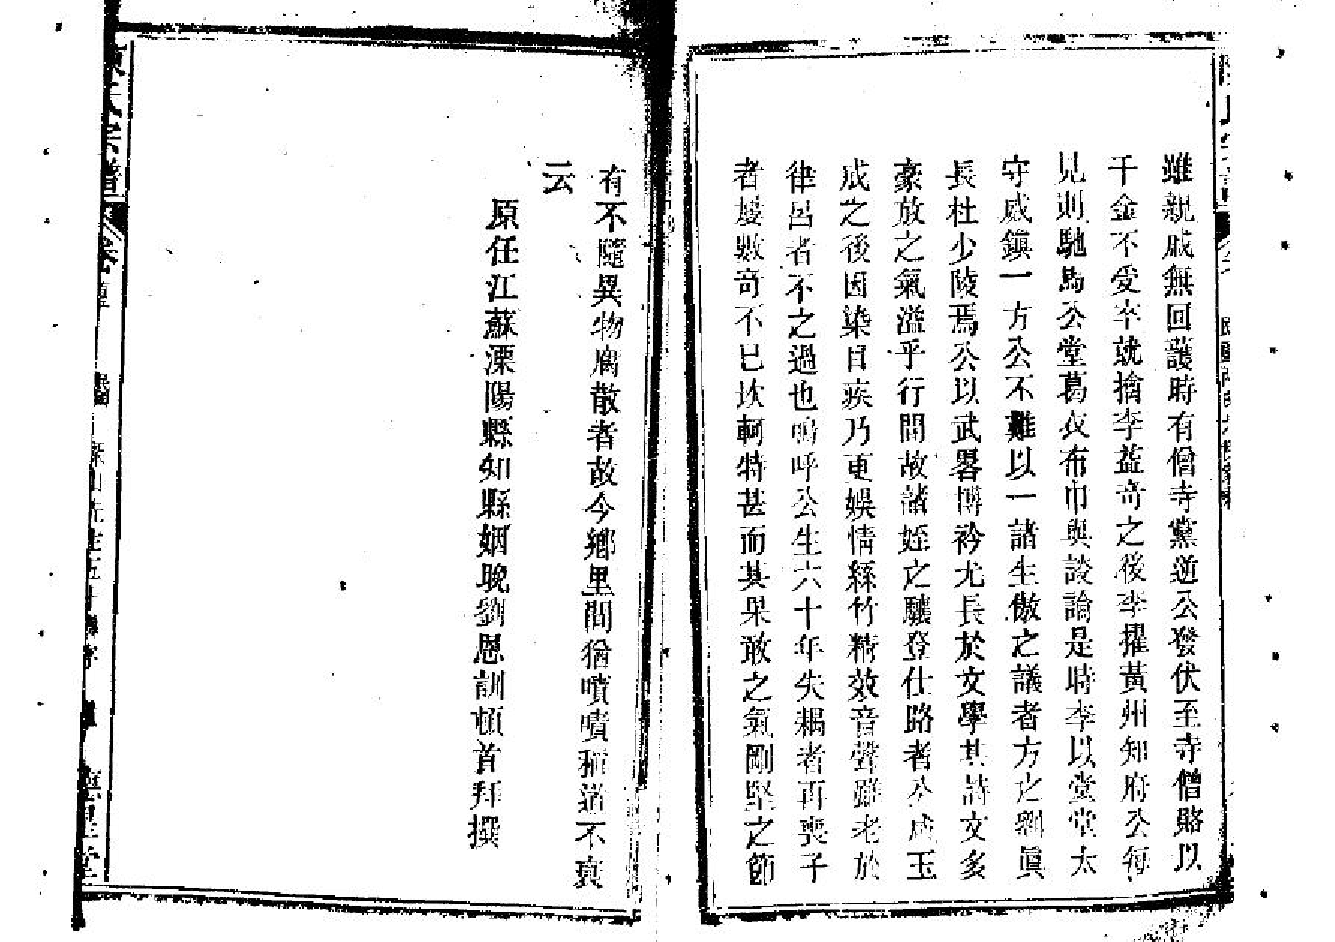 雖親戚無回護時有僧寺黨逆公發伏至寺僧賂以
千金不受卒就擒李益奇之後李擢黃州知府公每
見則馳馬公堂葛衣布巾與談論是時李以堂堂太
守威鎮一方公不難以一諸生傲之議者方之劉真
長杜少陵焉公以武畧博衿尤長於文學其詩文多
豪放之氣溢乎行間故諸姪之驤登仕路者公成玉
成之後因染目疾乃更娛情絲竹精效音聲雖老於
律呂者不之過也嗚呼公生六十年失耦者再喪子
者屢數奇不已坎軻特甚而其果敢之氣剛堅之節
有不隨異物腐散者故今鄉里間猶嘖嘖稱道不衰
云
原任江蘇溧陽縣知縣姻晚劉恩訓頓首拜撰
氏宗譜